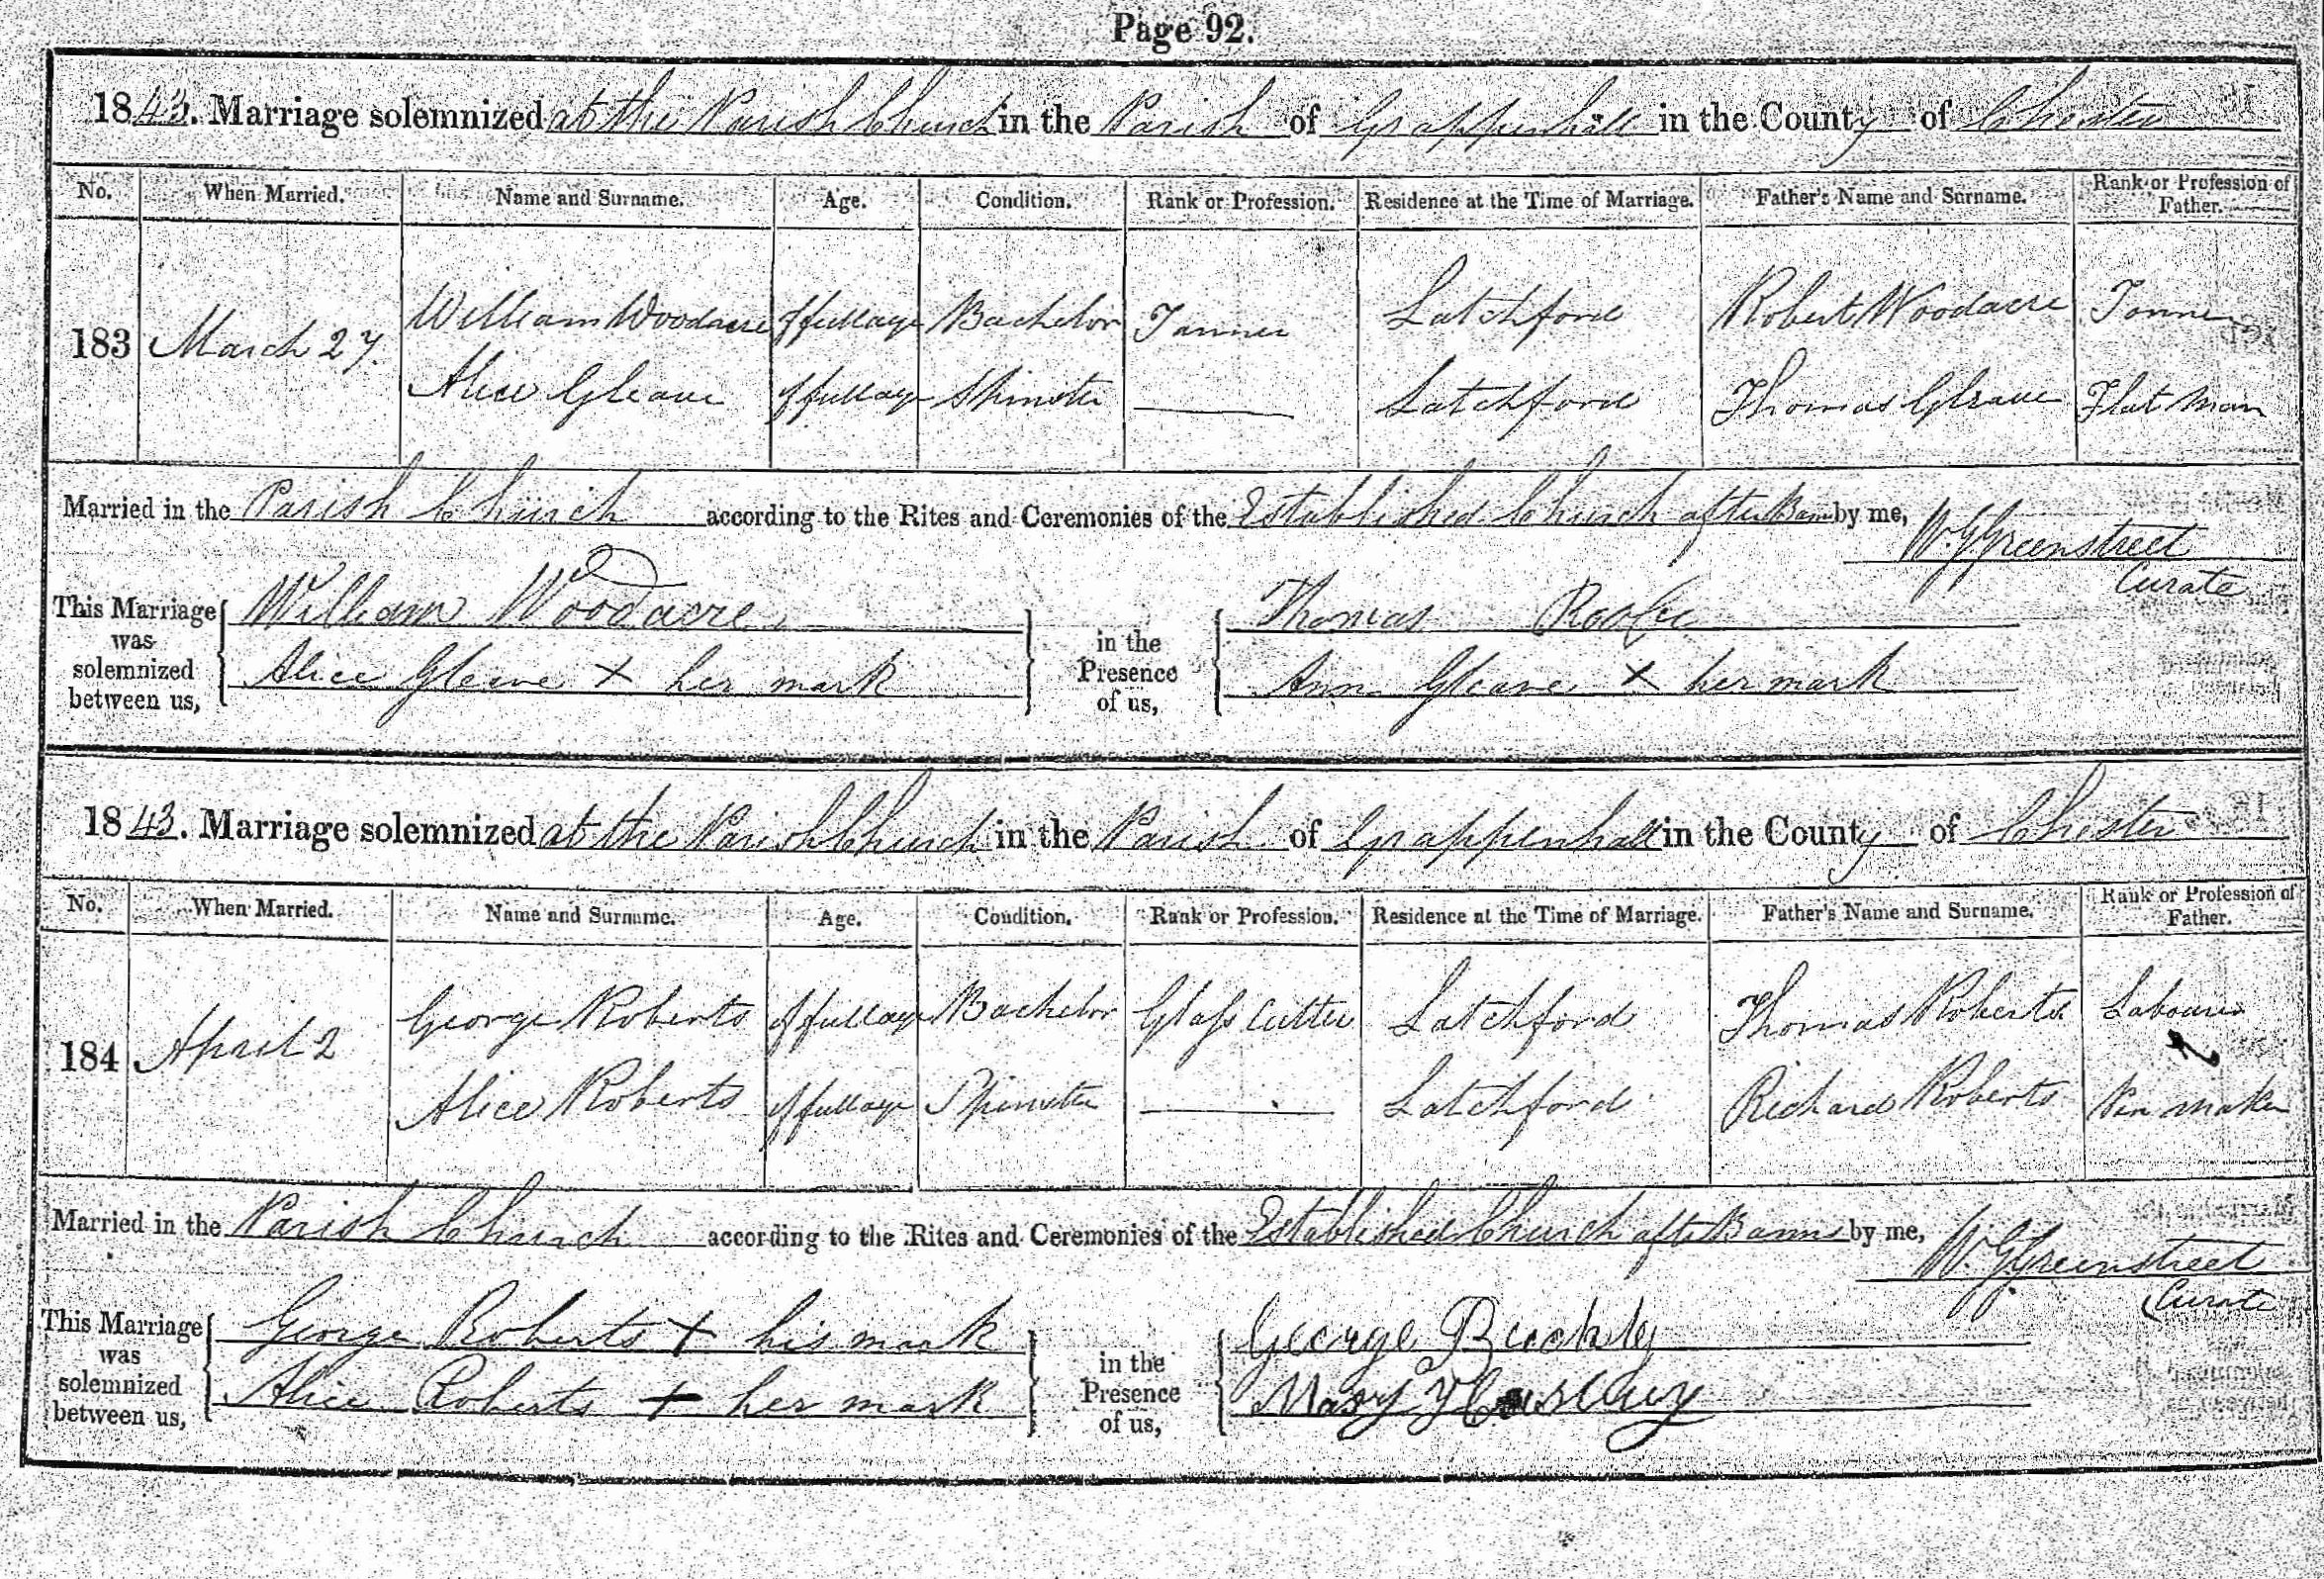 Page 92.
1843. Marriage solemnized at the Parish Church in the Parish of Grappenhall in the County of Chester
No. When Married. Name and Surname. Age. Condition. Rank or Profession. Residence at the Time of Marriage. Father's Name and Surname. Rank or Profession of Father.
183 March 27. William Woodacre of full age Bachelor Tanner Latchford Robert Woodacre Tanner
Alice Gleave of full age Spinster — Latchford Thomas Gleave Flat man
Married in the Parish Church according to the Rites and Ceremonies of the Established Church after Banns by me,
W. G Greenstreet
Curate
This Marriage was solemnized between us,
William Woodacre
Alice Gleave X her mark
in the Presence of us,
Thomas
Ann Gleave X her mark
1843. Marriage solemnized at the Parish Church in the Parish of Grappenhall in the County of Chester
No. When Married. Name and Surname. Age. Condition. Rank or Profession. Residence at the Time of Marriage. Father's Name and Surname. Rank or Profession of Father.
184 April 2 George Roberts of full age Bachelor Glass Cutter Latchford Thomas Roberts Labourer
Alice Roberts of full age Spinster — Latchford Richard Roberts Pin maker
Married in the Parish Church according to the Rites and Ceremonies of the Established Church after Banns by me,
W. G Greenstreet
Curate
This Marriage was solemnized between us,
George Roberts + his mark
Alice Roberts + her mark
in the Presence of us,
George Buckly
Mary